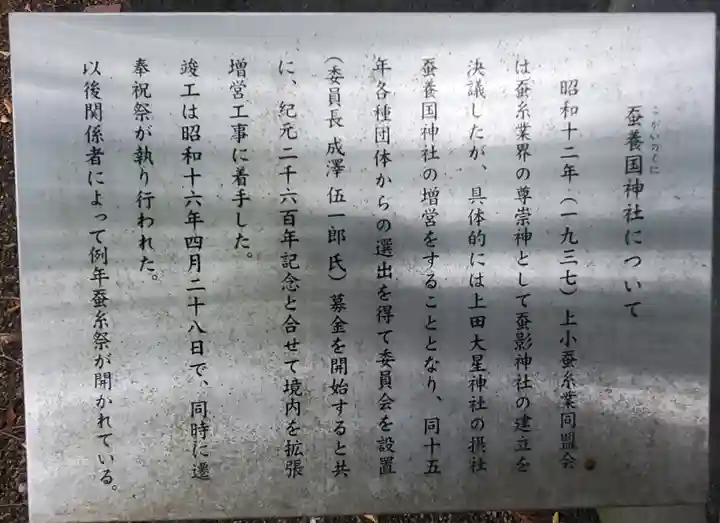 蚕養国神社について
こがいのくに
昭和十二年（一九三七）上小蚕糸業同盟会
は蚕糸業界の尊崇神として蚕影神社の建立を
決議したが、具体的には上田大星神社の摂社
蚕養国神社の増営をすることとなり、同十五
年各種団体からの選出を得て委員会を設置
（委員長 成澤 伍一郎 氏）募金を開始すると共
に、紀元二千六百年記念と合せて境内を拡張
増営工事に着手した。
竣工は昭和十六年四月二十八日で、同時に遷
奉祝祭が執り行われた。
以後関係者によって例年蚕糸祭が開かれている。